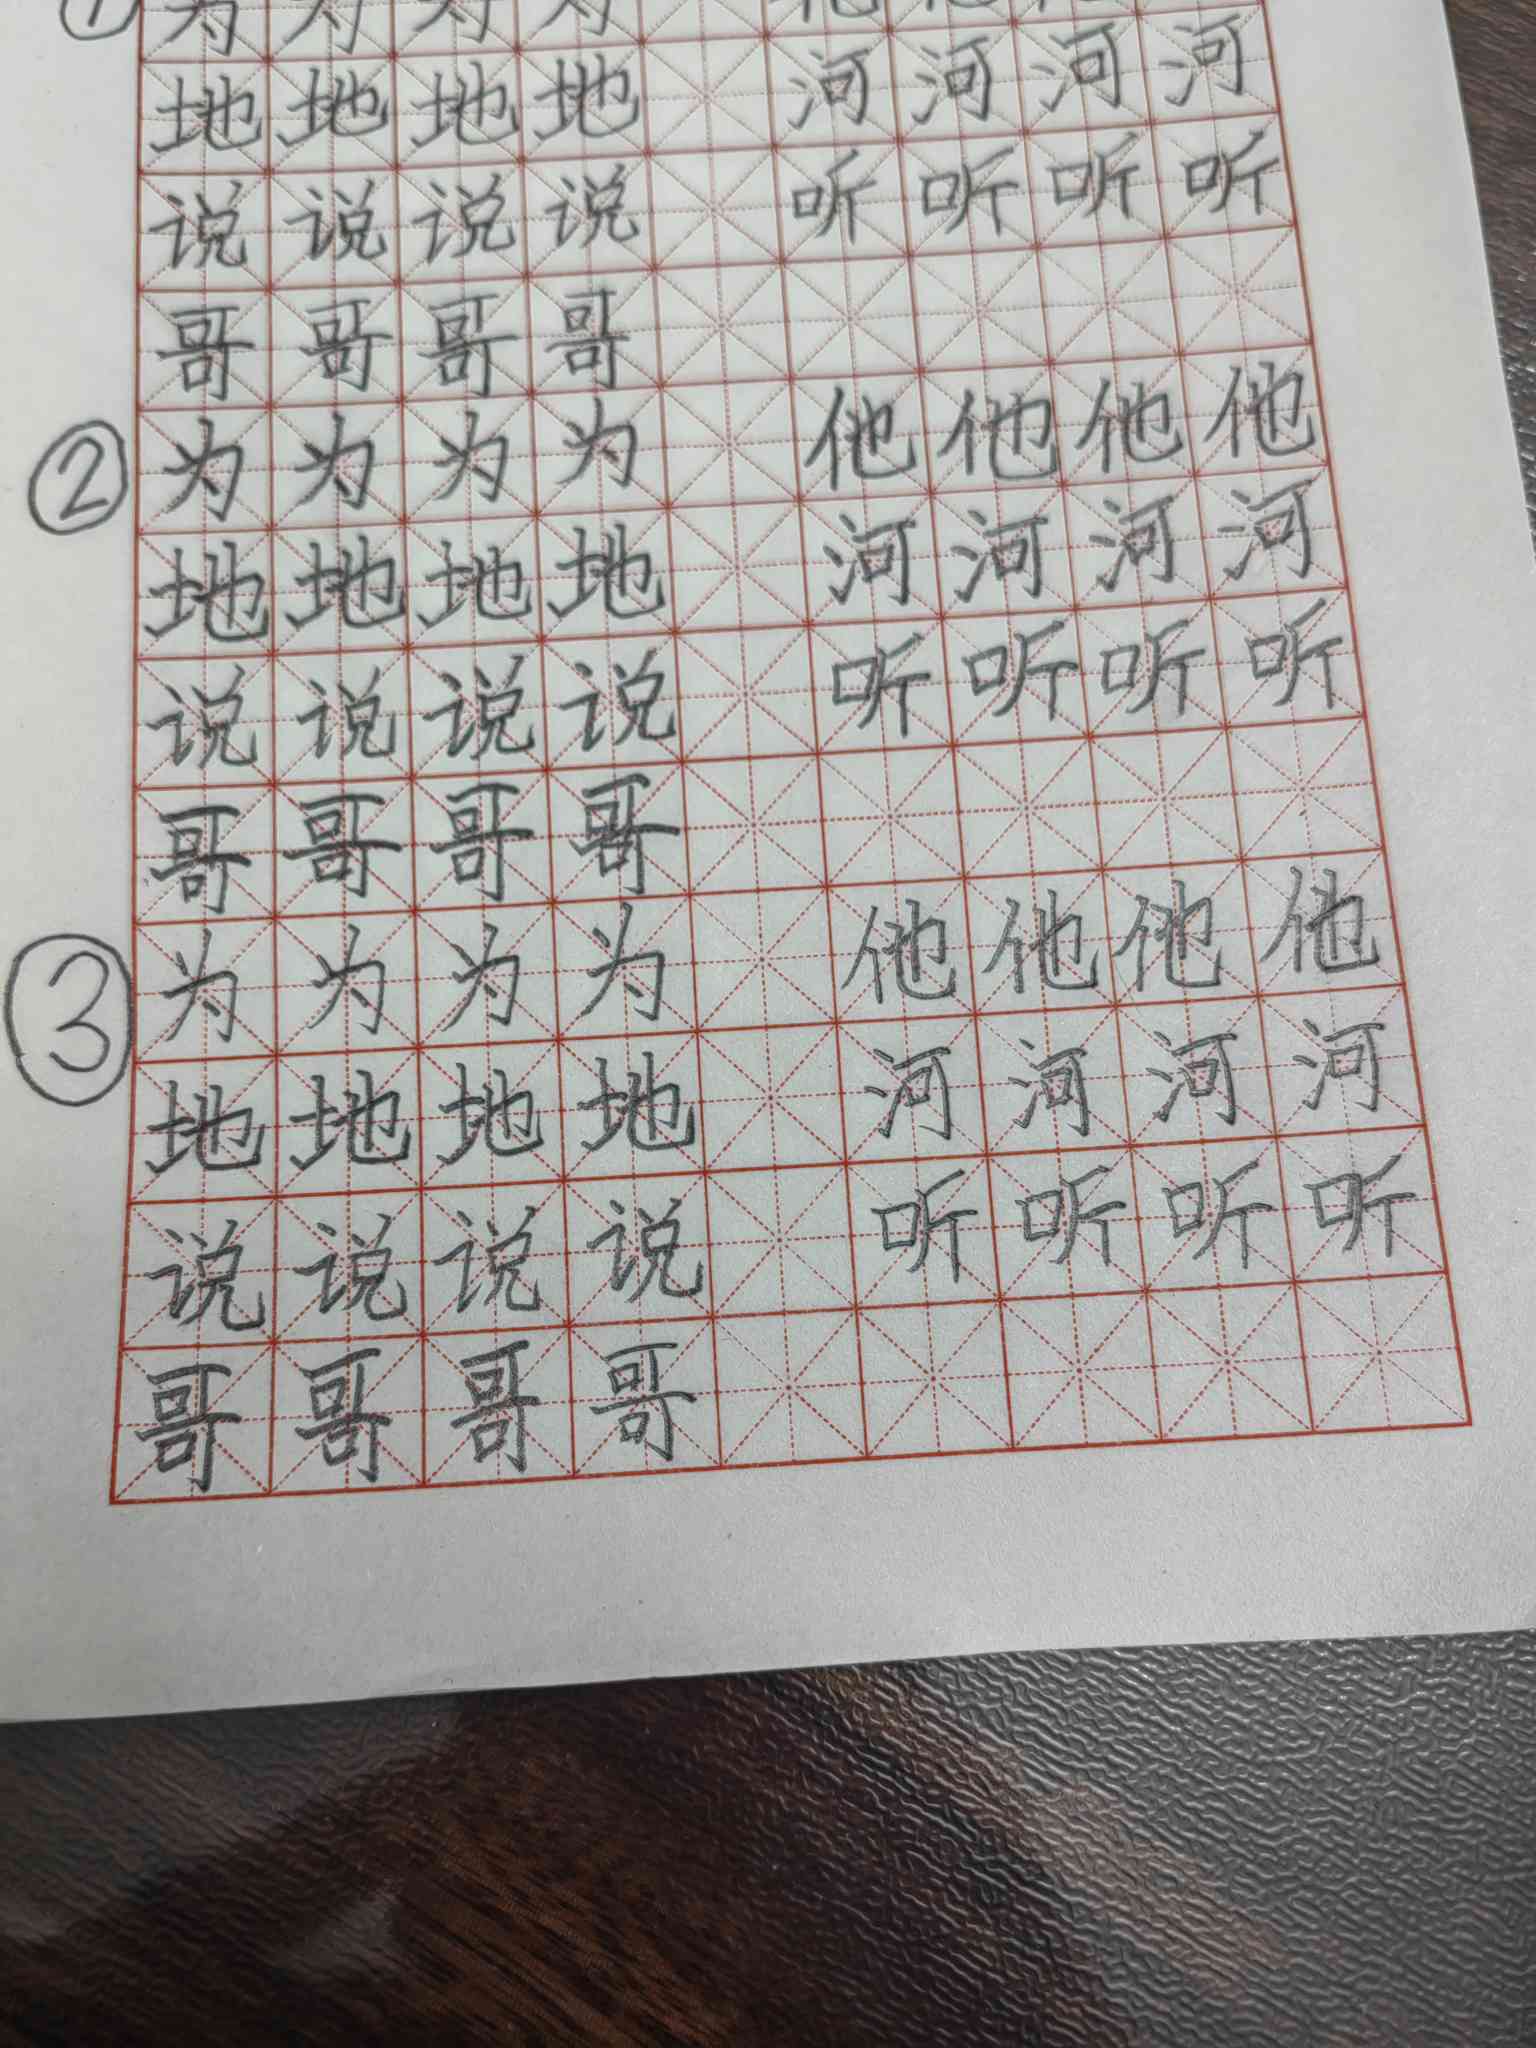 ① 为 为 为 为 他 他 他
地 地 地 地 河 河 河 河
说 说 说 说 听 听 听 听
哥 哥 哥 哥
② 为 为 为 为 他 他 他 他
地 地 地 地 河 河 河 河
说 说 说 说 听 听 听 听
哥 哥 哥 哥
③ 为 为 为 为 他 他 他 他
地 地 地 地 河 河 河 河
说 说 说 说 听 听 听 听
哥 哥 哥 哥